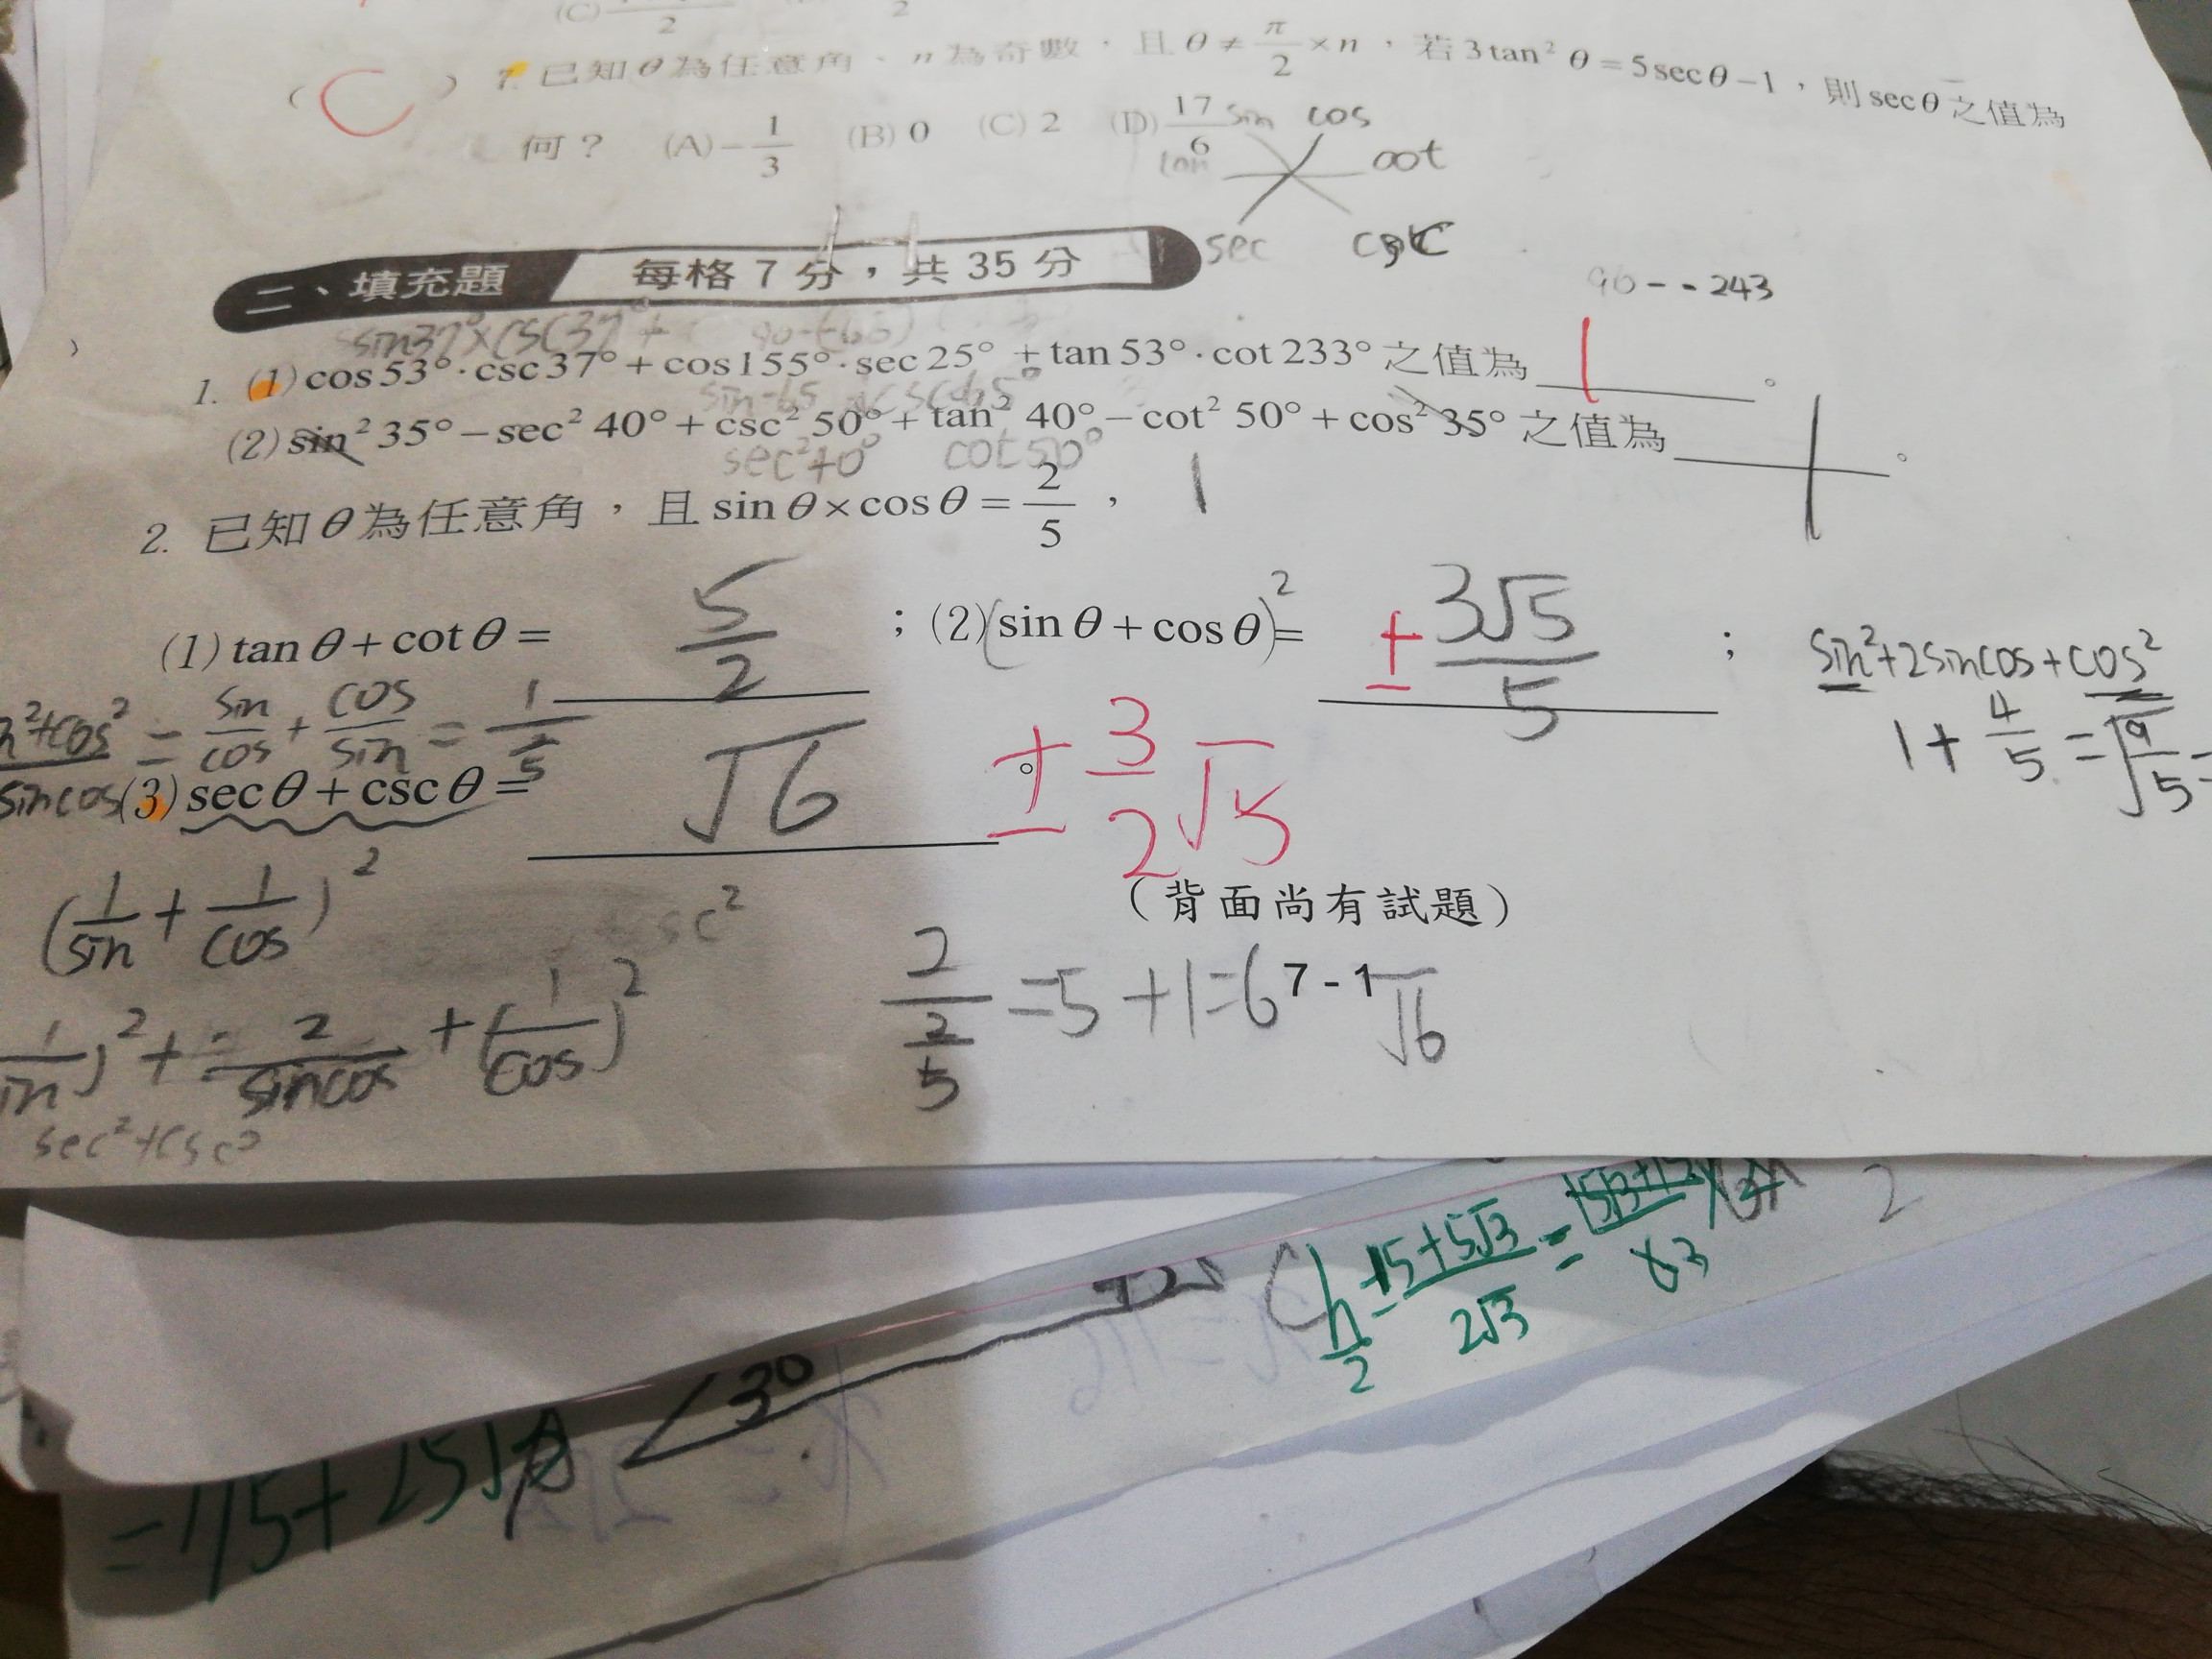 (C) 2 2
( C ) 7. 已知θ為任意角、n為奇數，且θ≠π/2×n，若3tan²θ=5secθ−1，則secθ之值為
何？ (A)−1/3 (B) 0 (C) 2 (D) 17/6
sin cos
tan cot
sec csc
二、填充題 每格 7 分，共 35 分
90--243
sin37°×csc37°+
1. (1) cos53°·csc37°+cos155°·sec25°+tan53°·cot233°之值為 1 。
sin-65 csc65°
(2) sin²35°−sec²40°+csc²50°+tan²40°−cot²50°+cos²35°之值為 1 。
sec²40° cot50°
2. 已知θ為任意角，且sinθ×cosθ=2/5， 1
(1) tanθ+cotθ= 5/2 ；(2)(sinθ+cosθ)²= ±3√5/5 ；
sin²+2sincos+cos²
1+4/5=√9/5=
²+cos²/sincos = sin/cos + cos/sin = 1/(2/5)
(3) secθ+cscθ= √6 。 ±3/2√5
(1/sin+1/cos)²
sc²
（背面尚有試題）
)²+2/sincos+(1/cos)²
2/(2/5)=5+1=6 √6
7 - 1
sec²+csc²
h/2=15+5√3/2√3=
2
3°